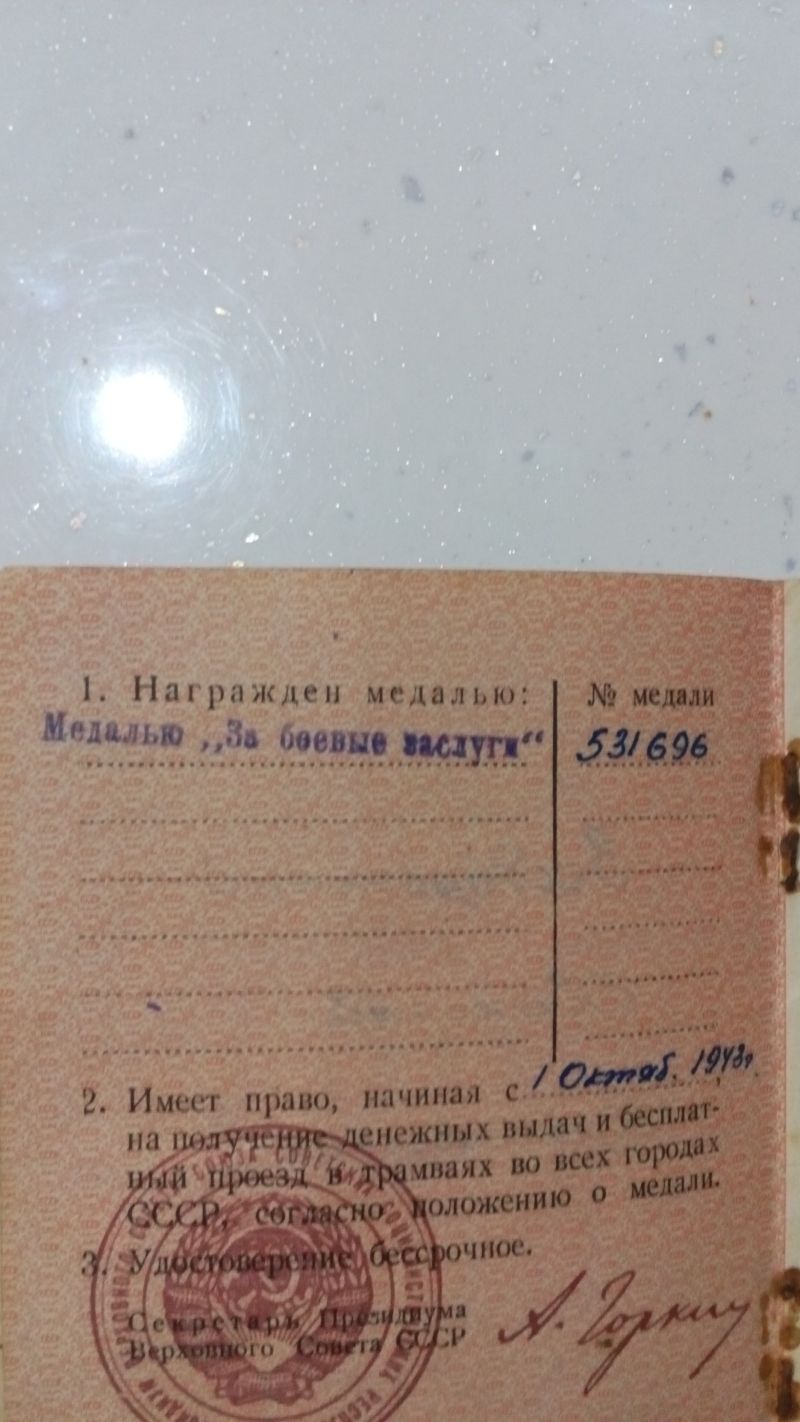 1. Награжден медалью: № медали
Медалью „За боевые заслуги“ 531696
2. Имеет право, начиная с 1 Октяб. 1943г,
на получение денежных выдач и бесплат-
ный проезд в трамваях во всех городах
СССР, согласно положению о медали.
3. Удостоверение бессрочное.
Секретарь Президиума
Верховного Совета СССР
А. Горкин